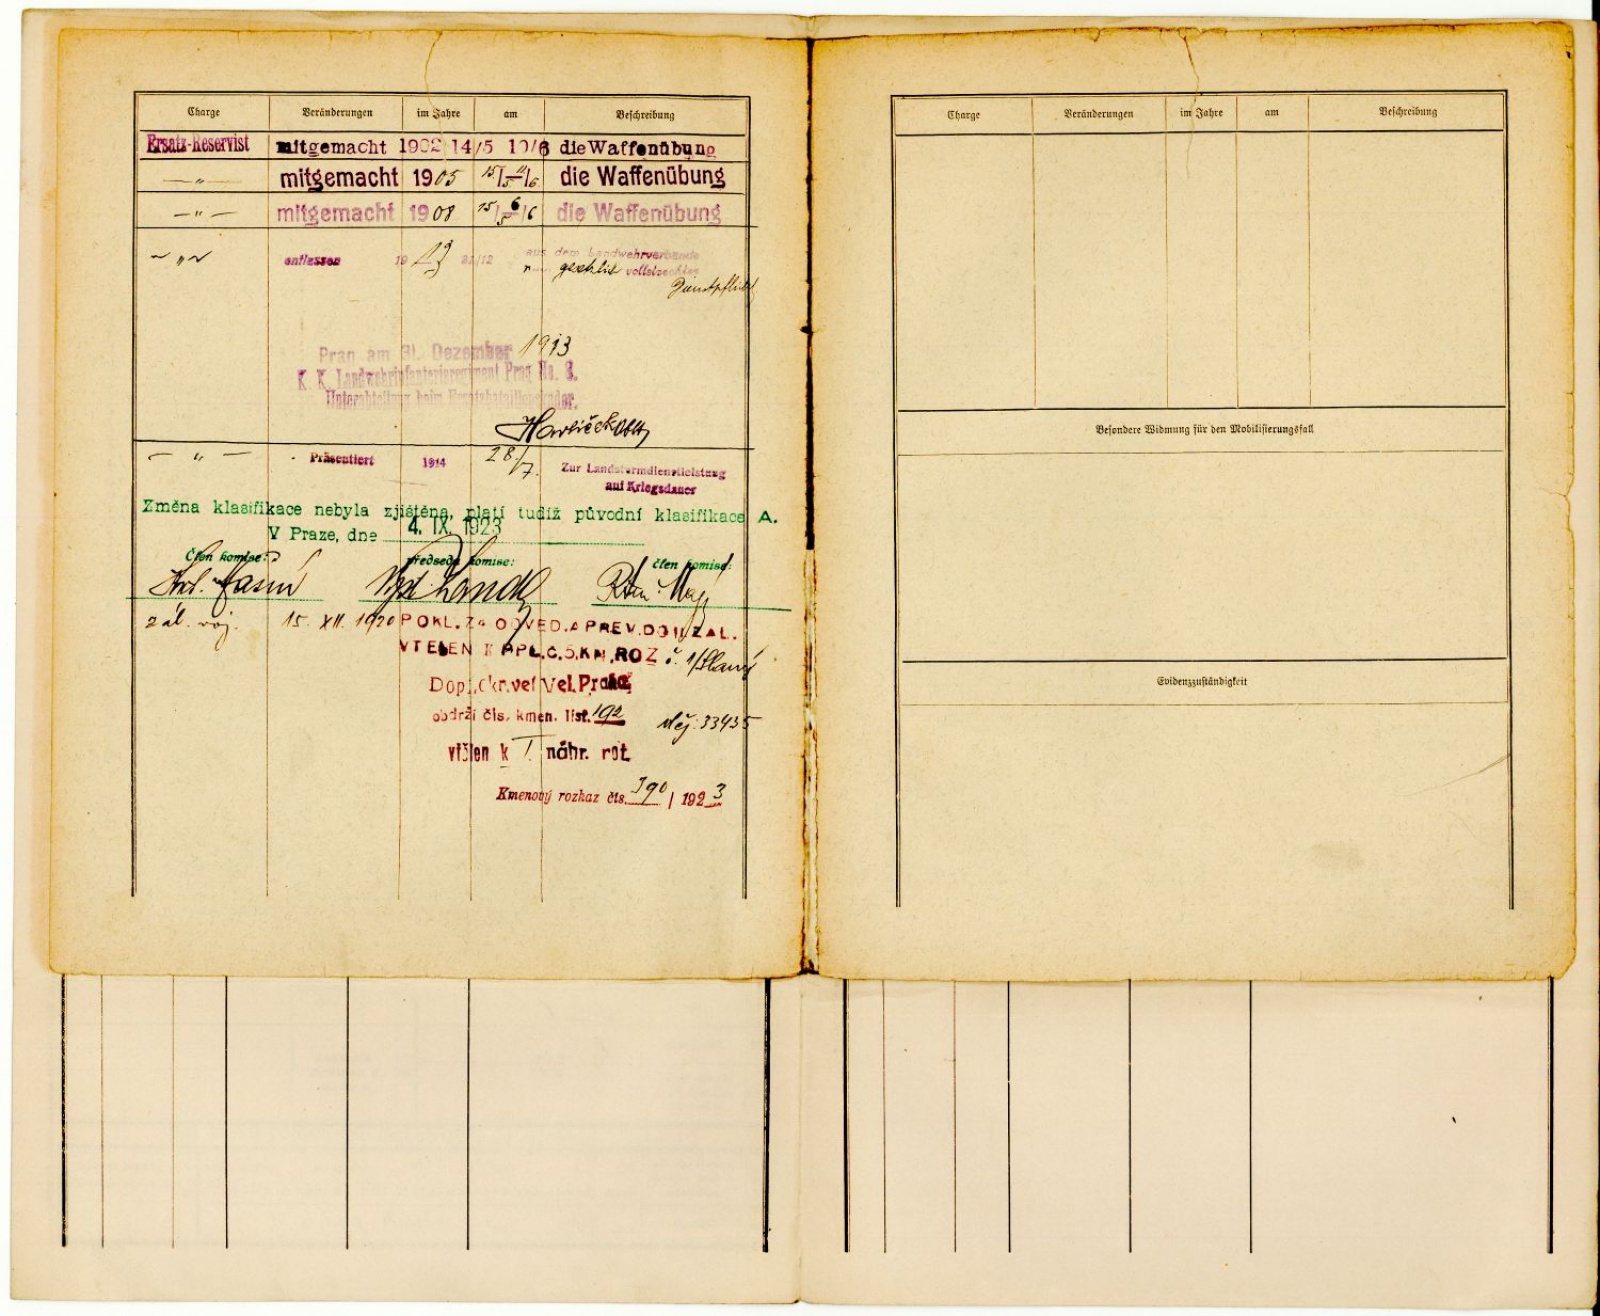 Charge Veränderungen im Jahre am Beschreibung
Ersatz-Reservist mitgemacht 1902 14/5 10/6 die Waffenübung
—"— mitgemacht 1905 15/5 — 11/6 die Waffenübung
—"— mitgemacht 1908 15/5 — 6/6 die Waffenübung
—"— entlassen 1913 31/12 aus dem Landwehrverbande
n. gesetzlich vollstreckter
Dienstpflicht
Prag am 31. Dezember 1913
K. K. Landwehrinfanterieregiment Prag No. 8.
Unterabteilung beim Ersatzbataillonskader.
Havlíček Oblt
—"— Präsentiert 1914 28/7. Zur Landsturmdienstleistung
auf Kriegsdauer
Změna klasifikace nebyla zjištěna, platí tudíž původní klasifikace A.
V Praze, dne 4. IX. 1923
Člen komise: předseda komise: člen komise:
zál. voj. 15. XII. 1920 POKL. ZA ODVED. A PREV. DO ZAL.
VTĚLEN K PPL. Č. 5, KM. ROZ č. 1/Slaný
Dopl. okr. vel Vel. Praha
obdrží čís. kmen. list. 192 děj: 33435
vtělen k I náhr. rot.
Kmenový rozkaz čís. 190 / 1923
Charge Veränderungen im Jahre am Beschreibung
Besondere Widmung für den Mobilisierungsfall
Evidenzzuständigkeit